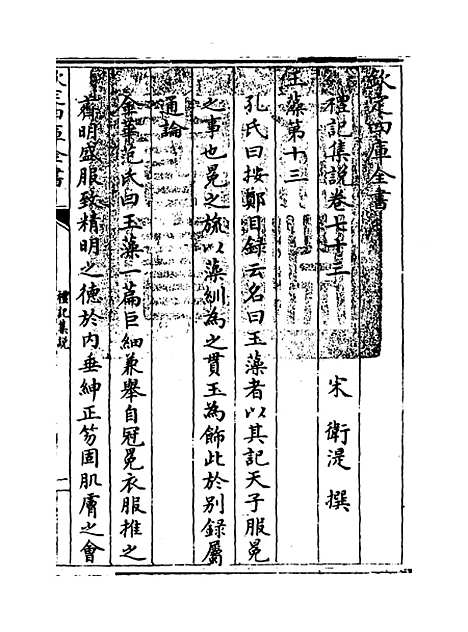 欽定四庫全書
禮記集說卷七十三
宋 衛湜 撰
玉藻第十三
孔氏曰按鄭目録云名曰玉藻者以其記天子服冕
之事也冕之旒以藻紃為之貫玉為飾此於別録屬
通論
金華范氏曰玉藻一篇巨細兼舉自冠冕衣服推之
齊明盛服致精明之德於内垂紳正笏固肌膚之會
欽定四庫全書
禮記集說